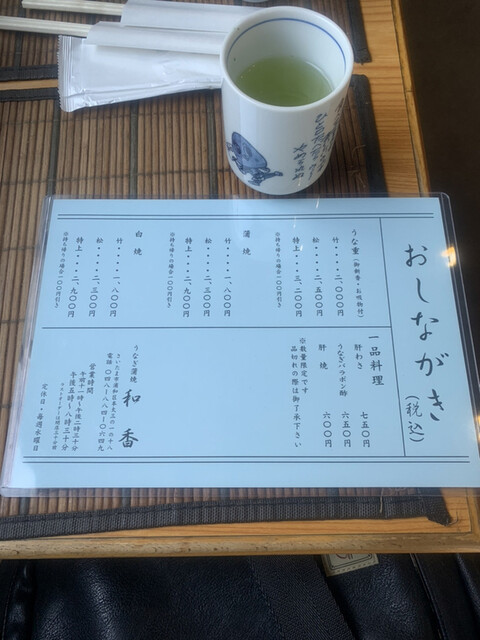 おしながき(税込)
うな重(御新香・お吸物付)
竹・・・二、〇〇〇円
松・・・二、五〇〇円
特上・・・三、二〇〇円
※お持ち帰りの場合一〇〇円引き
蒲焼
竹・・・一、八〇〇円
松・・・二、三〇〇円
特上・・・二、九〇〇円
※お持ち帰りの場合一〇〇円引き
白焼
竹・・・一、八〇〇円
松・・・二、三〇〇円
特上・・・二、九〇〇円
※お持ち帰りの場合一〇〇円引き
一品料理
肝わさ 七五〇円
うなぎバラポン酢 六五〇円
肝焼 六〇〇円
※数量限定です
品切れの際は御了承下さい
うなぎ蒲焼 和香
さいたま市浦和区本太三の一の十八
電話 〇四八-八八四-〇六四九
営業時間
午前十一時〜午後二時三十分
午後五時〜八時三十分
ラストオーダーは閉店三十分前
定休日・毎週水曜日